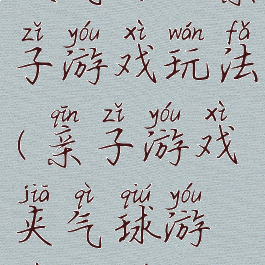 zǐ yóu xì wán fǎ
子游戏玩法
qīn zǐ yóu xì
(亲子游戏
jiā qì qiú yóu
夹气球游